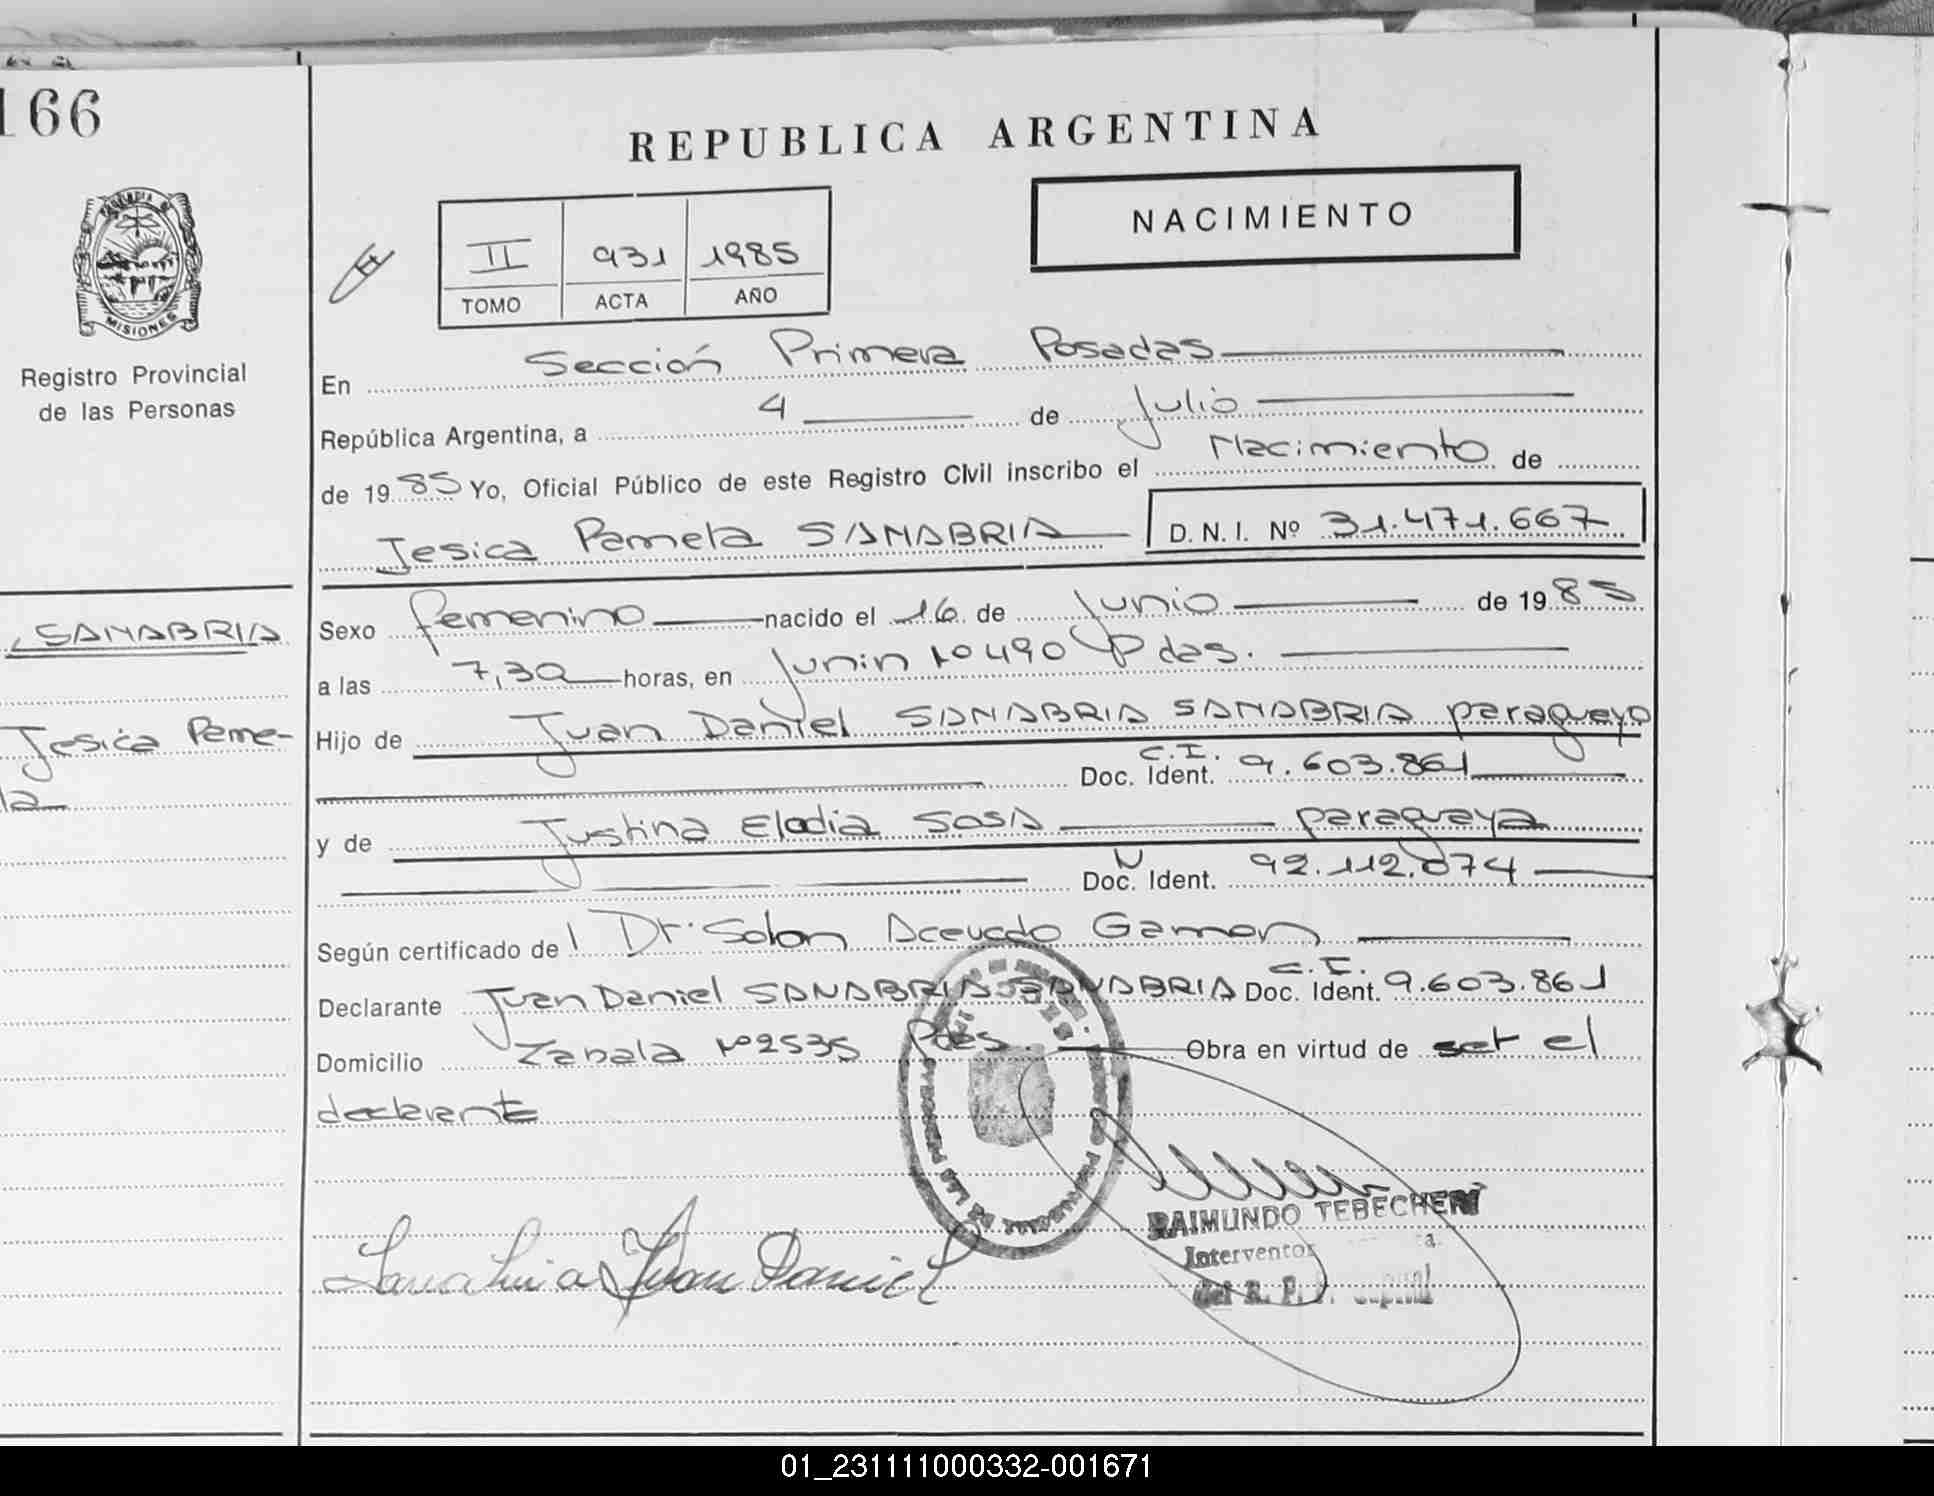 166
REPUBLICA ARGENTINA
NACIMIENTO
II 931 1985
TOMO ACTA AÑO
MISIONES
Registro Provincial
de las Personas
En Sección Primera Posadas
República Argentina, a 4 de Julio
de 1985 Yo, Oficial Público de este Registro Civil inscribo el Nacimiento de
Jesica Pamela SANABRIA D. N. I. Nº 31.471.667
SANABRIA
Jesica Pame-
la
Sexo femenino nacido el 16 de Junio de 1985
a las 7,30 horas, en Junin Nº 490 Pdas.
Hijo de Juan Daniel SANABRIA SANABRIA paraguayo
C.I.
Doc. Ident. 9.603.861
y de Justina Elodia SOSA paraguaya
N
Doc. Ident. 92.112.074
Según certificado de Dr. Solon Acevedo Gamon
C.I.
Declarante Juan Daniel SANABRIA SANABRIA Doc. Ident. 9.603.861
Domicilio Zabala Nº 2535 Pdas. Obra en virtud de ser el
declarante
Sanabria Juan Daniel
RAIMUNDO TEBECHERI
Interventor
del R. P.
01_231111000332-001671